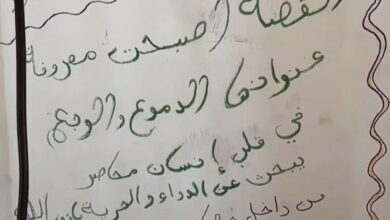 القصة أصبحت معروفة
عنوانها الدموع والوجع
في قلب إنسان محاصر
يبحث عن الدواء والحرية
من داخل